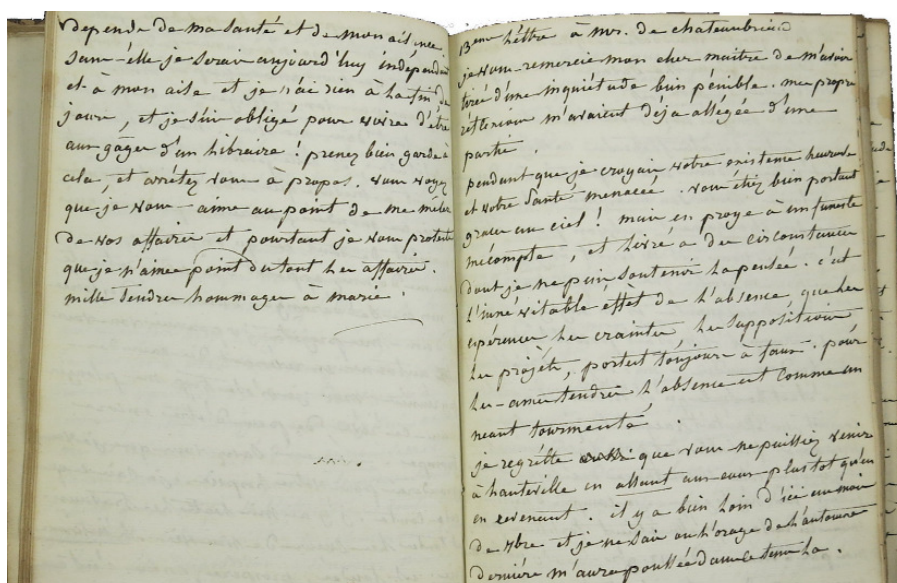 depende de ma santé et de mon aisance.
sans-elle je serais aujourd'huy indépendante
et à mon aise et je n'ai rien à la fin de
jours, et je suis obligé pour vivre d'être
aux gages d'un libraire ! prenez bien garde à
cela, et arrêtez vous à propos. vous voyez
que je vous-aime au point de me mêler
de vos affaires et pourtant je vous proteste
que je n'aime point du tout les affaires.
mille tendres hommages à marie.
lettre à mr. de chateaubriand
je vous-remercie mon cher maitre de m'avoir
tirée d'une inquiétude bien pénible. mes propres
réflexions m'avaient déja allégée d'une
partie.
pendant que je croyais votre existence heureuse
et votre santé menacée. vous étiez bien portant
graces au ciel ! mais en proye à un funeste
mécompte, et livré à des circonstances
dont je ne puis soutenir la pensée. c'est
l'inévitable effêt de l'absence, que les
espérances les craintes les suppositions
les projèts, portent toujours à faux. pour
les-ames tendres l'absence est comme un
neant tourmenté.
je regrétte que vous ne puissiez venir
à hauteville en allant aux eaux plustot qu'en
en revenant. il y a bien loin d'ici au mois
de et je ne sais où l'orage de l'automne
dernière m'aura poussée dans ce tems la.